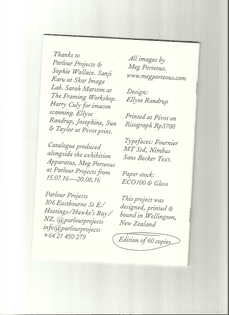 Thanks to
Parlour Projects &
Sophie Wallace. Sanji
Karu at Skar Image
Lab. Sarah Marston at
The Framing Workshop.
Harry Culy for imacon
scanning. Ellyse
Randrup, Josephine, Sun
& Taylor at Pivot print.
Catalogue produced
alongside the exhibition
Apparatus, Meg Porteous
at Parlour Projects from
15.07.16—20.08.16
Parlour Projects
306 Eastbourne St E/
Hastings/Hawke's Bay/
NZ. @parlourprojects
info@parlourprojects
+64 21 450 279
All images by
Meg Porteous.
www.megporteous.com
Design:
Ellyse Randrup
Printed at Pivot on
Risograph Rp3700
Typefaces: Fournier
MT Std, Nimbus
Sans Becker Text.
Paper stock:
ECO100 & Gloss
This project was
designed, printed &
bound in Wellington,
New Zealand
Edition of 60 copies.